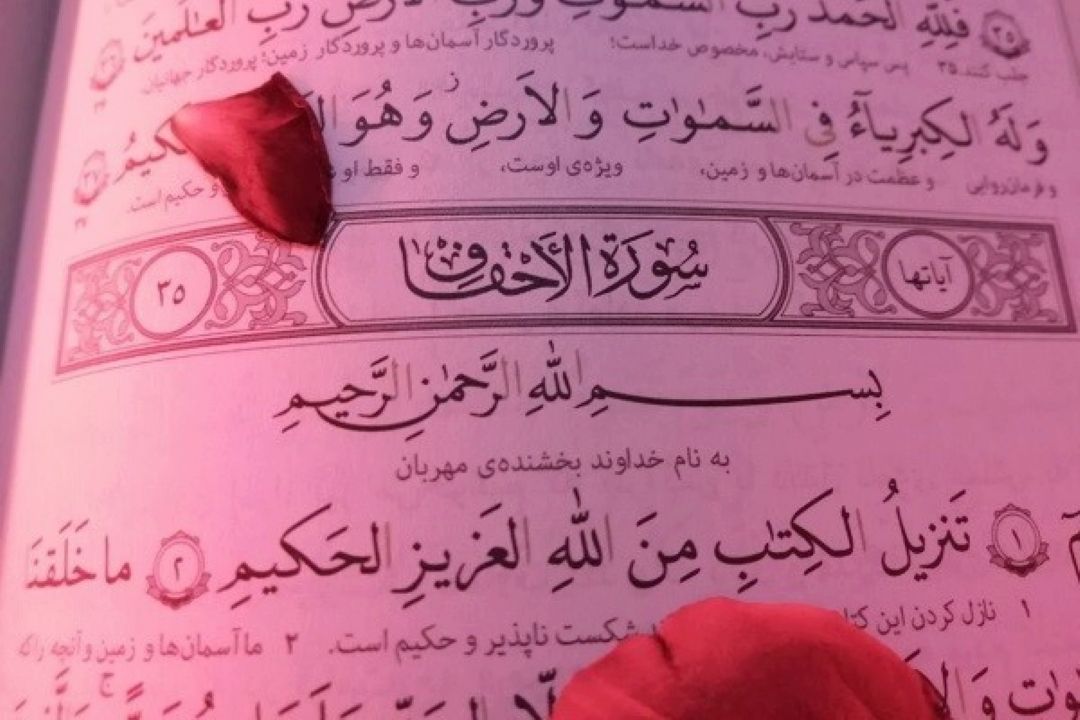 فَلِلّٰهِ الحَمدُ رَبِّ السَّمٰوٰتِ وَرَبِّ الاَرضِ رَبِّ العٰلَمينَ ٣٦
جلب کنند. ۳۵ پس سپاس و ستایش، مخصوص خداست؛ پروردگار آسمان‌ها و پروردگار زمین؛ پروردگار جهانیان
وَ لَهُ الكِبرِياءُ فِی السَّمٰوٰتِ وَ الاَرضِ وَ هُوَ
و فرمان‌روایی و عظمت در آسمان‌ها و زمین، ویژه‌ی اوست، و فقط او و حکیم است.
آیاتها سُورَةُ الأَحقافِ ٣٥
بِسمِ اللّٰهِ الرَّحمٰنِ الرَّحيمِ
به نام خداوند بخشنده‌ی مهربان
١ تَنزيلُ الكِتٰبِ مِنَ اللّٰهِ العَزيزِ الحَكيمِ ٢ ما خَلَقنَا
۱ نازل کردن این شکست ناپذیر و حکیم است. ۲ ما آسمان‌ها و زمین و آنچه را که